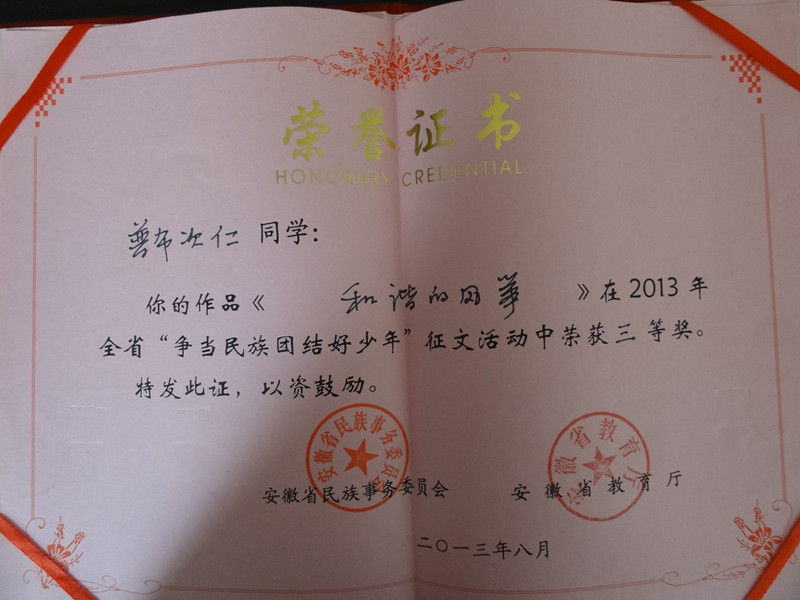 荣誉证书
HONORARY CREDENTIAL
普布次仁 同学:
你的作品《 和谐的 》在2013年
全省“争当民族团结好少年”征文活动中荣获三等奖。
特发此证，以资鼓励。
安徽省民族事务委员会
安徽省教育厅
安徽省民族事务委员会 安徽省教育厅
二〇一三年八月